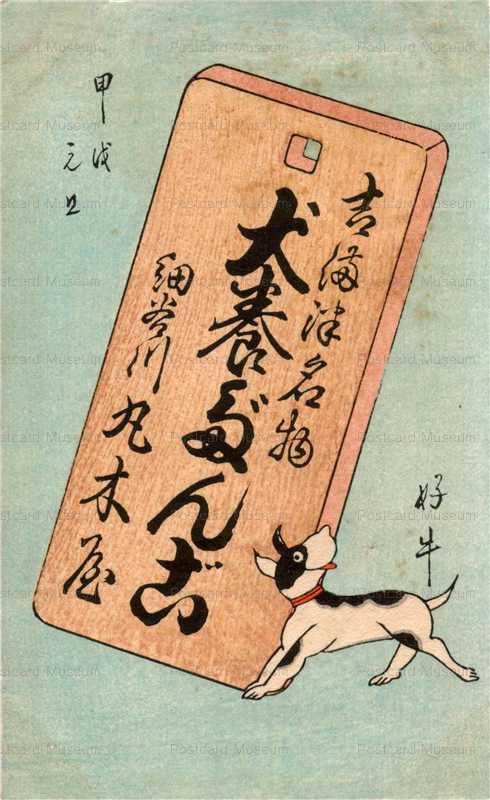 吉備津名物
犬養だんご
細谷川
丸木屋
甲戌
元旦
好牛
Postcard Museum